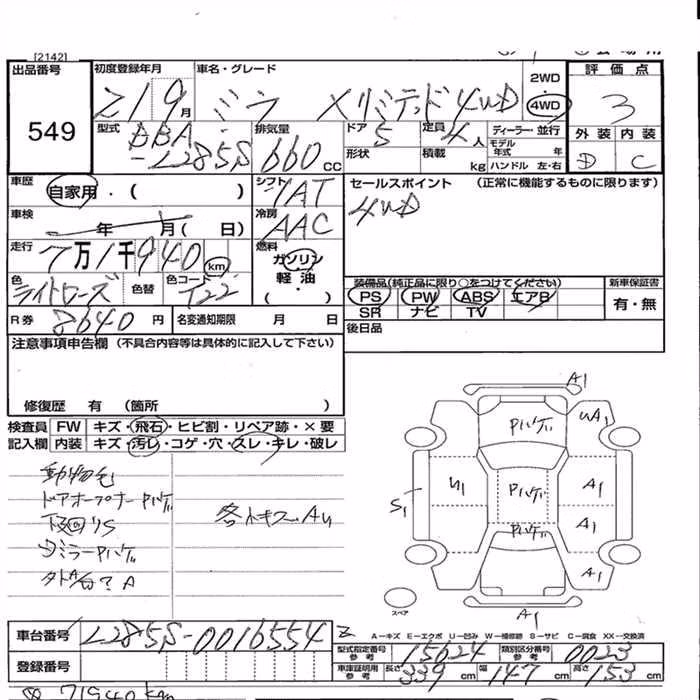 [2142]
出品番号
549
初度登録年月 車名・グレード
21 9月 ミラ 4WD
2WD
4WD
評価点
3
外装 内装
D C
型式 DBA
-L285S
排気量
660cc
ドア 5
形状
定員 4人
積載 kg
ディーラー・並行
モデル年式 年
ハンドル 左・右
車歴 自家用・( )
シフト
AT
セールスポイント (正常に機能するものに限ります)
4WD
車検 年 月(日)
冷房
AAC
走行 7万1千940 km
燃料
ガソリン
軽油
・( )
色 ライトローズ 色替 色コード T22
装備品(純正品に限り○をつけてください)
PS PW ABS エアB
SR ナビ TV
新車保証書
有・無
R券 8640円 名変通知期限 月 日
後日品
注意事項申告欄 (不具合内容等は具体的に記入して下さい)
修復歴 有 (箇所 )
検査員 FW キズ・飛石・ヒビ割・リペア跡・×要
記入欄 内装 キズ・汚レ・コゲ・穴・スレ・キレ・破レ
動物毛
下回りS
A1
UA1
U1
A1
S1
A1
A1
スペア
A1
A－キズ E－エクボ U－凹み W－補修跡 S－サビ C－腐食 XX－交換済
車台番号 L285S-0016554
登録番号
型式指定番号参考 15624 類別区分番号参考 0023
車庫証明用参考 長さ 339cm 幅 147cm 高さ 153cm
71940km